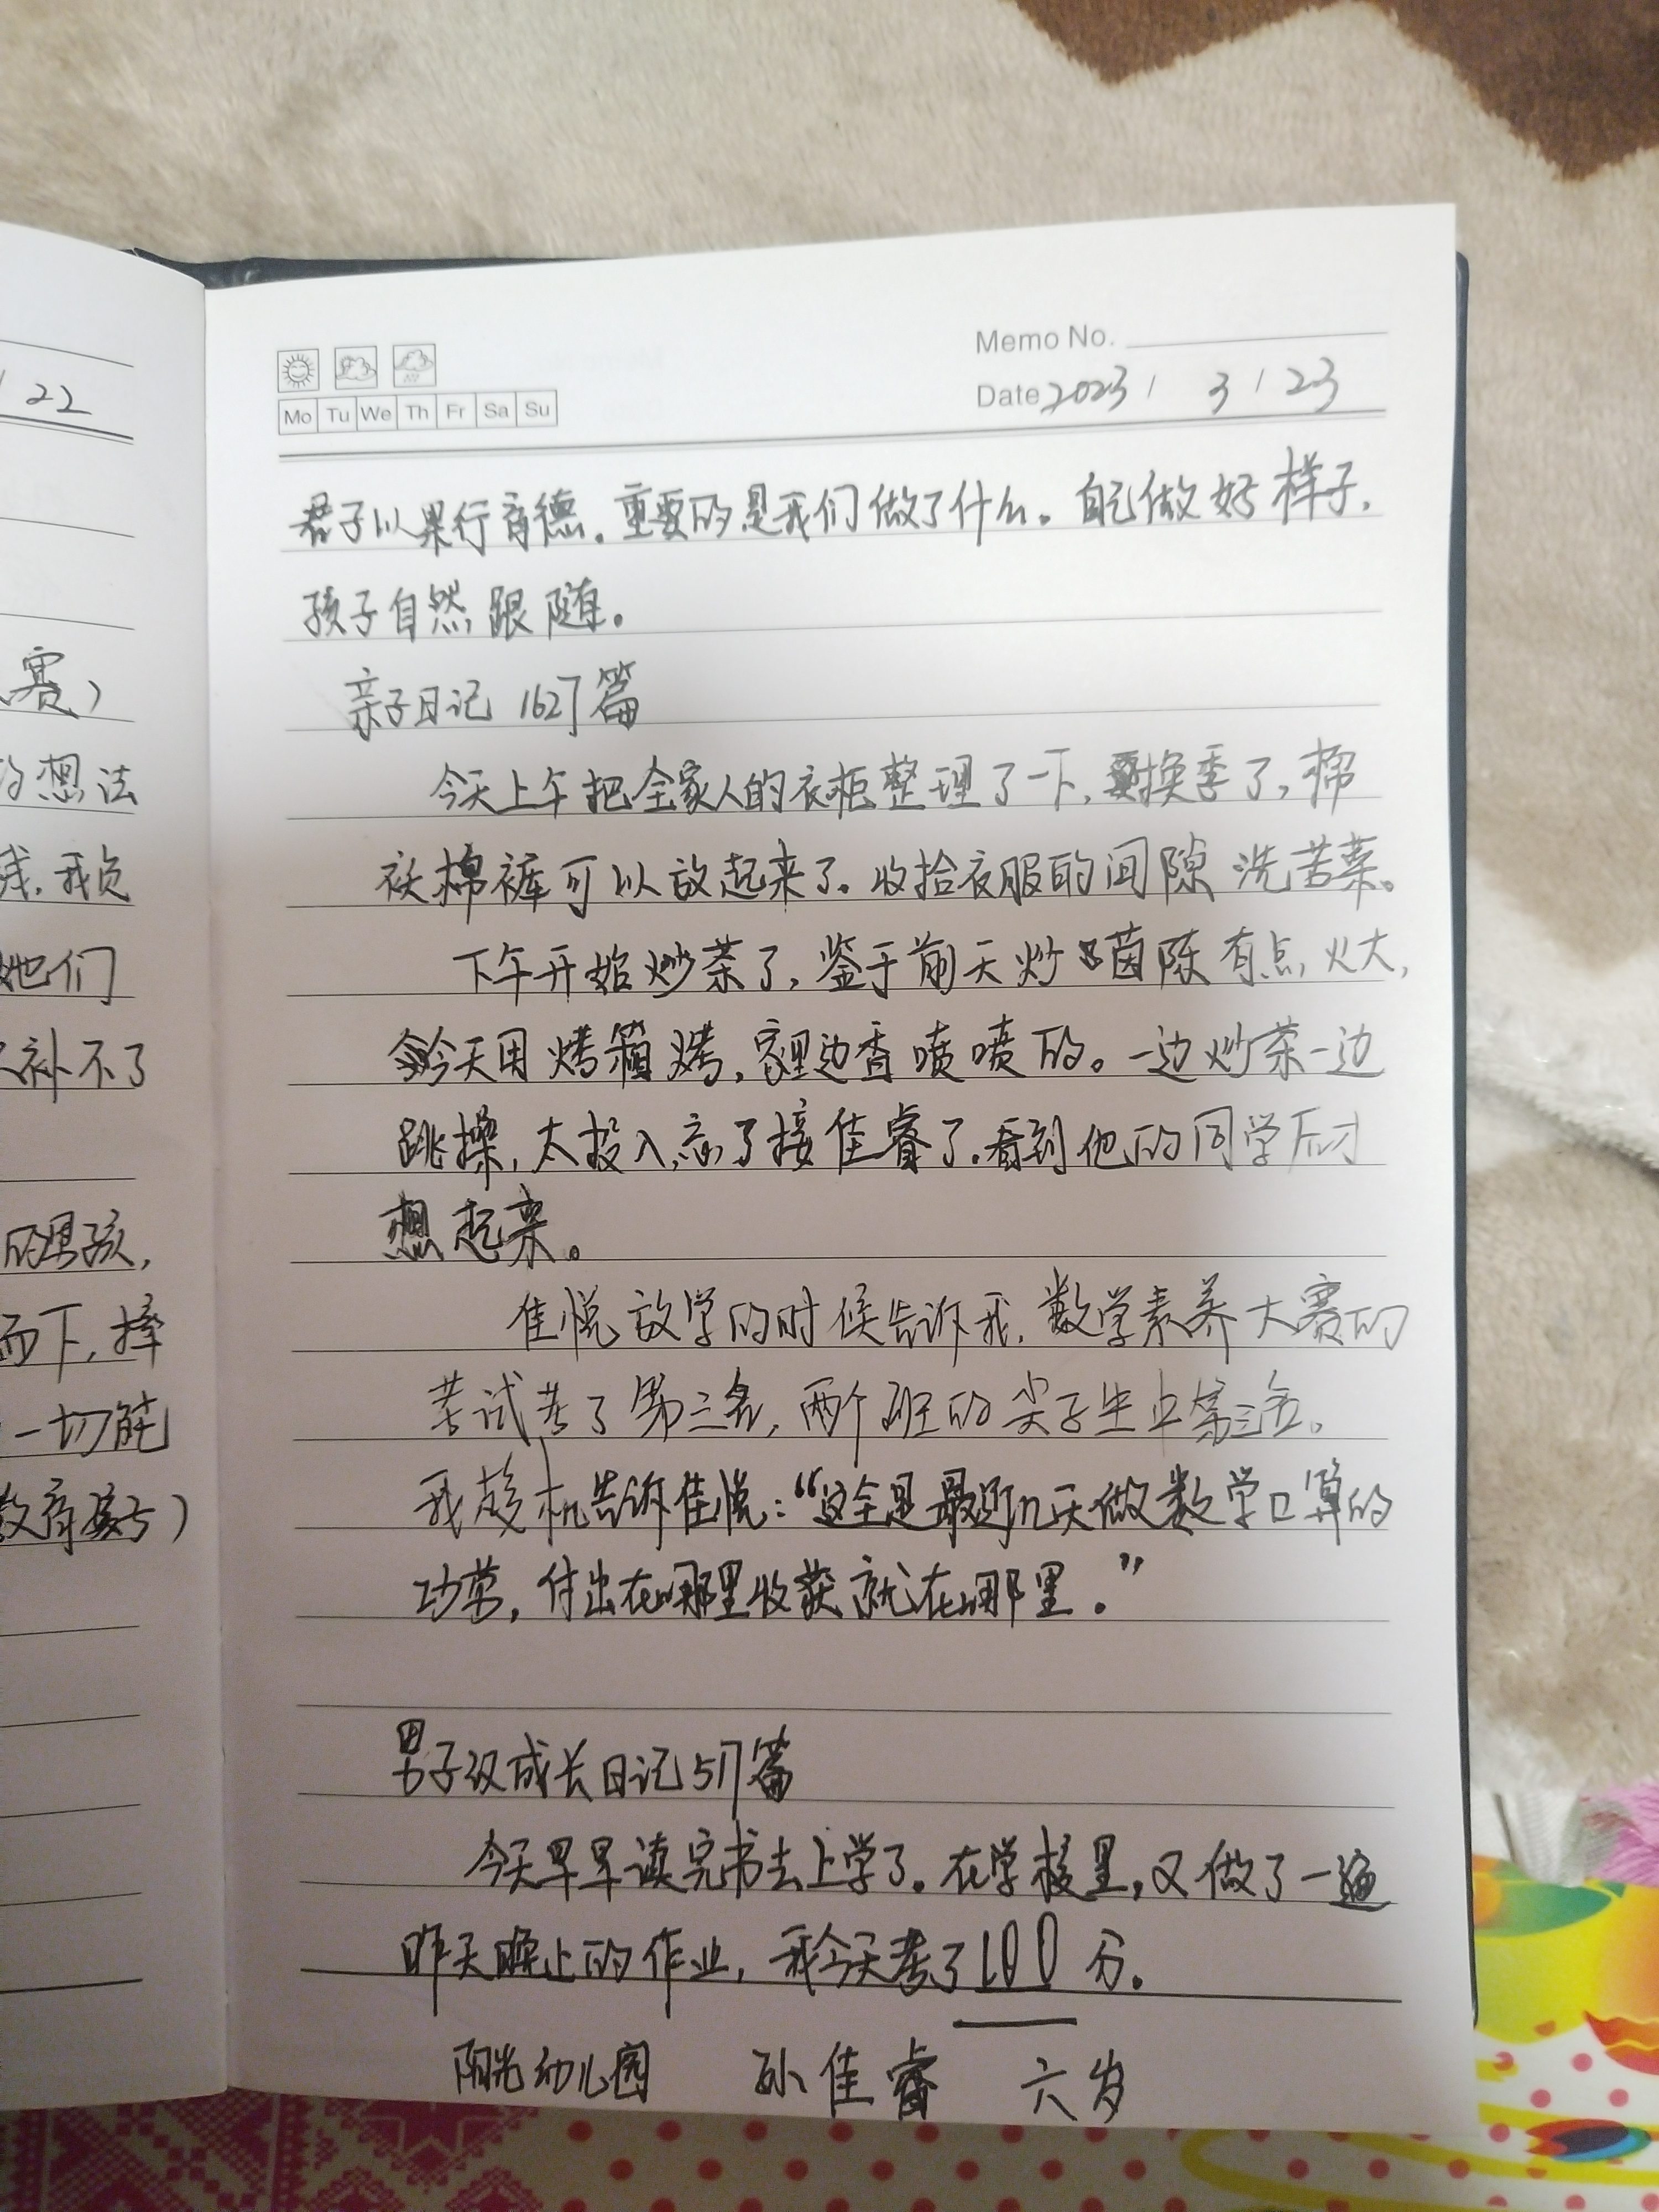 22
赛）
的想法
我负
她们
补不了
的男孩，
而下，摔
一切能
教育
Memo No.
Mo Tu We Th Fr Sa Su
Date 2023 / 3 / 23
君子以果行育德。重要的是我们做了什么。自己做好样子，
孩子自然跟随。
亲子日记 1627篇
今天上午把全家人的衣柜整理了一下，换季了，棉
袄棉裤可以放起来了。收拾衣服的间隙洗苦菜。
下午开始炒茶了，鉴于前天炒茵陈有点火大，
今天用烤箱烤，家里边香喷喷的。一边炒茶一边
跳操，太投入，忘了接佳睿了。看到他的同学后才
想起来。
佳悦放学的时候告诉我，数学素养大赛的
考试考了第三名，两个班的尖子生上第三名。
我趁机告诉佳悦：“这全是最近几天做数学口算的
功劳，付出在哪里收获就在哪里。”
男子汉成长日记517篇
今天早早读完书去上学了。在学校里，又做了一遍
昨天晚上的作业，我今天考了100分。
阳光幼儿园 孙佳睿 六岁